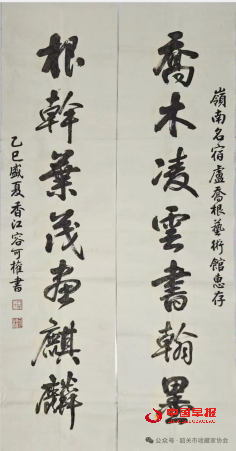 嶺南名宿盧喬根藝術館惠存
喬木凌雲書翰墨
根幹葉茂畫麒麟
乙巳盛夏香江容可權書
中国早报
公众号·韶关市收藏家协会